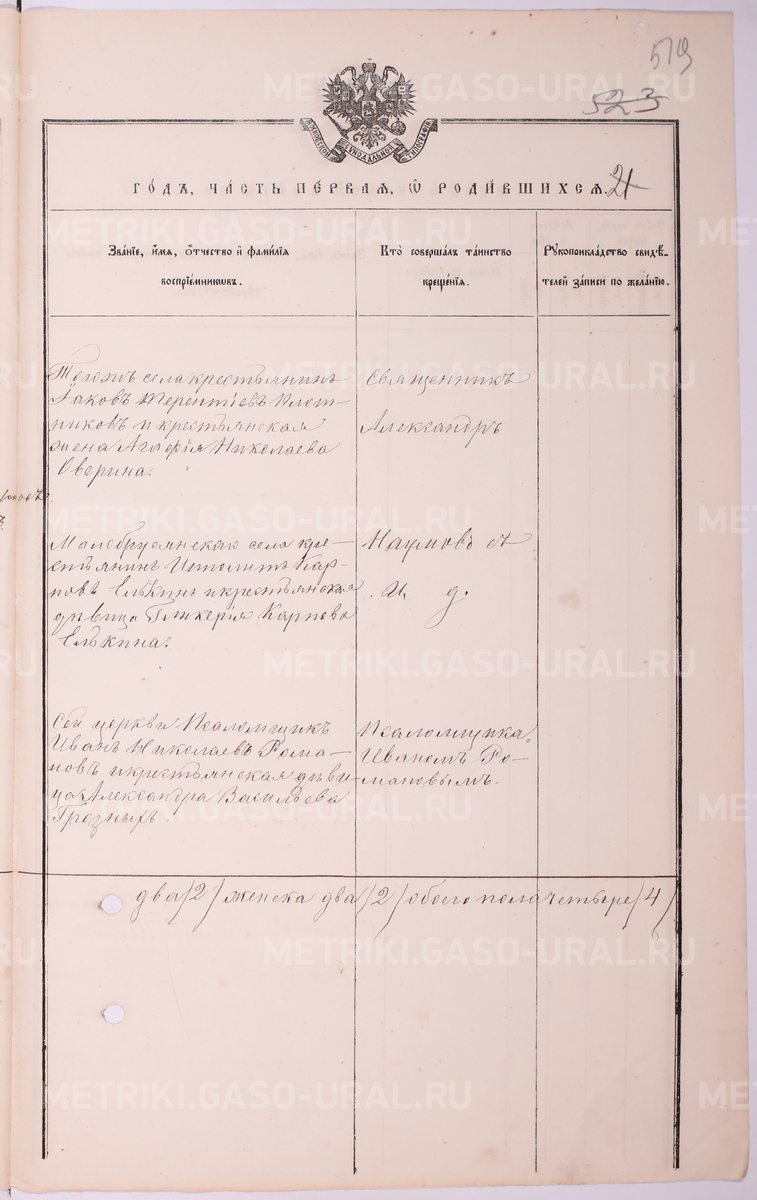 519
523
МОСКОВСКОЙ СѴНОДАЛЬНОЙ ТИПОГРАФІИ
ГОДЪ, ЧАСТЬ ПЕРВАЯ, Ѡ РОДИВШИХСЯ. 21
Званіе, имя, отчество и фамилія
воспріемниковъ.
Кто совершалъ таинство
крещенія.
Рукоприкладство свидѣ-
телей записи по желанію.
Тогожъ села крестьянинъ
Іаковъ Терентіевъ Плот-
никовъ и крестьянская
жена Агафія Николаева
Оверина.
Священникъ
Александръ
Малобрусянскаго села кре-
стьянинъ Иполитъ Кар-
повъ Елькинъ и крестьянская
дѣвица Гликерія Карпова
Елькина.
Наумовъ съ
и. д.
Сей церкви Псаломщикъ
Иванъ Николаевъ Рома-
новъ и крестьянская дѣви-
ца Александра Васильева
Грозныхъ.
Псаломщика
Иваномъ Ро-
мановымъ.
два /2/ женска два /2/ обоего пола четыре /4/
METRIKI.GASO-URAL.RU